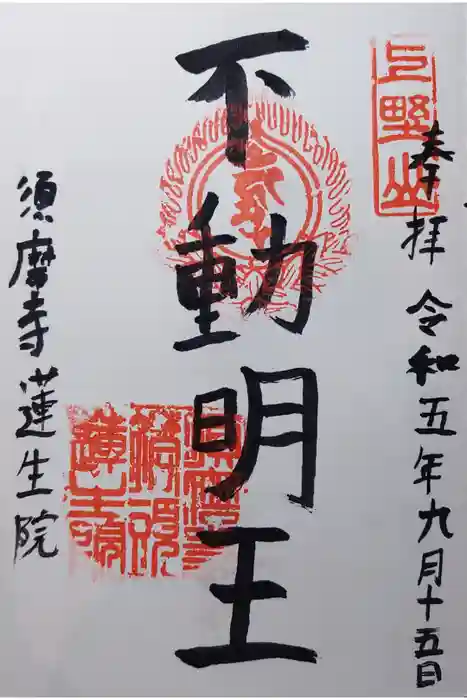 奉拝 令和五年九月十五日
上野山
不動明王
須磨寺蓮生院